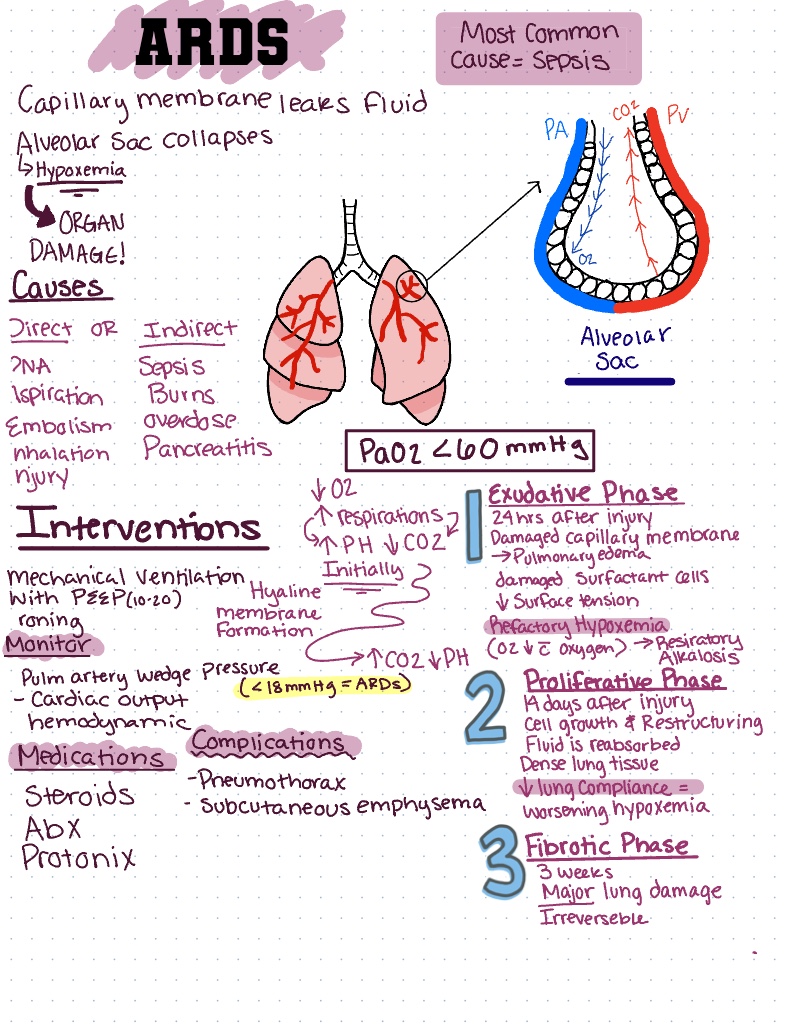 ARDS
Most Common
Cause = Sepsis
Capillary membrane leaks fluid
Alveolar Sac collapses
↳ Hypoxemia
ORGAN
DAMAGE!
PA
CO2
PV
O2
Alveolar
Sac
Causes
Direct OR Indirect
PNA
Sepsis
Ispiration
Burns
Embolism
overdose
nhalation
Pancreatitis
njury
PaO2 <60 mmHg
↓ O2
↑ respirations
↑ PH ↓ CO2
Initially
Hyaline
membrane
Formation
↑CO2 ↓PH
Interventions
Mechanical Ventilation
With PEEP (10-20)
roning
Monitor
Pulm artery wedge pressure
(<18mmHg = ARDs)
- Cardiac output
hemodynamic
Medications
Steroids
Abx
Protonix
Complications
-Pneumothorax
- Subcutaneous emphysema
1 Exudative Phase
24hrs after injury
Damaged capillary membrane
→Pulmonary edema
damaged surfactant cells
↓ Surface tension
Refactory Hypoxemia
(O2 ↓ c̄ oxygen) → Resiratory
Alkalosis
2 Proliferative Phase
14 days after injury
Cell growth & Restructuring
Fluid is reabsorbed
Dense lung tissue
↓ lung Compliance =
worsening hypoxemia
3 Fibrotic Phase
3 weeks
Major lung damage
Irreverseble